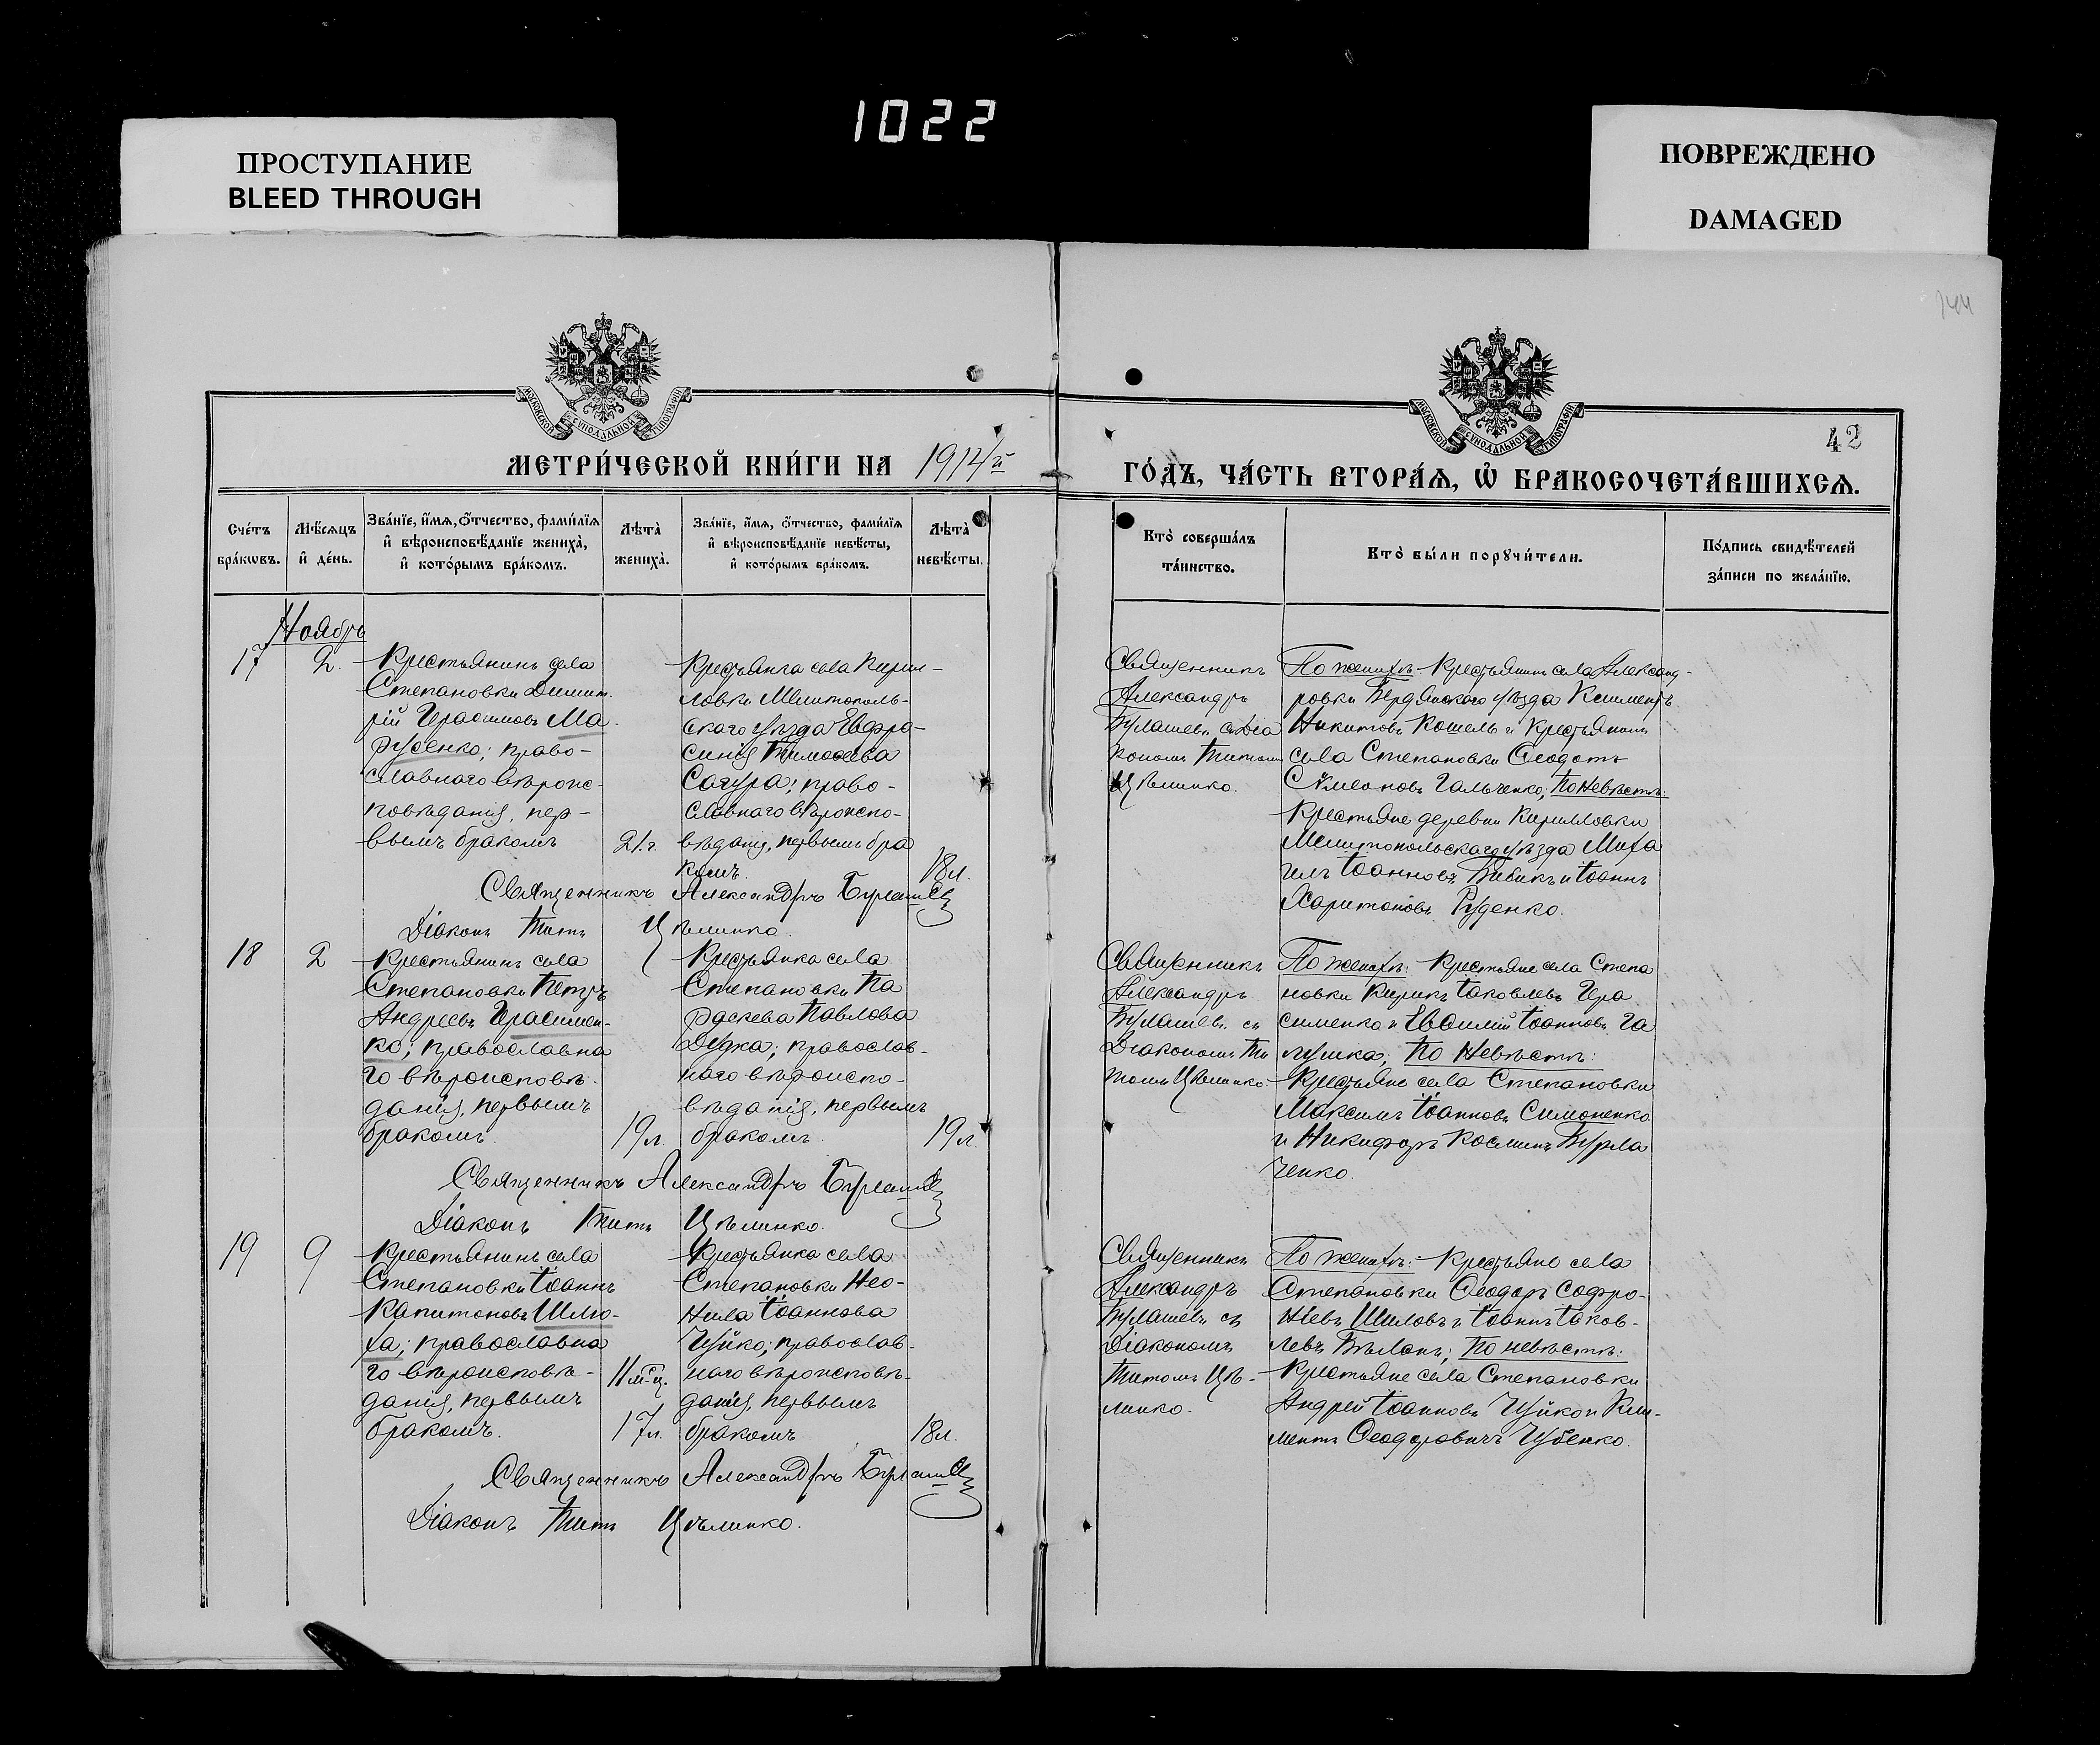 1022
ПРОСТУПАНИЕ
BLEED THROUGH
ПОВРЕЖДЕНО
DAMAGED
144
МОСКОВСКОЙ СѴНОДАЛЬНОЙ ТИПОГРАФІИ
МОСКОВСКОЙ СѴНОДАЛЬНОЙ ТИПОГРАФІИ
42
МЕТРИ́ЧЕСКОЙ КНИ́ГИ НА 1914/й
ГО́ДЪ, ЧА́СТЬ ВТОРА́Ѧ, Ѽ БРАКОСОЧЕТА́ВШИХСѦ.
Сче́тъ бра́кѡвъ.
Мѣ́сѧцъ и҆ де́нь.
Зва́нїе, и҆́мѧ, ѻ҆́тчество, фами́лїѧ
и҆ вѣроисповѣ́данїе жениха̀,
и҆ кото́рымъ бра́комъ.
Лѣта̀ жениха̀.
Зва́нїе, и҆́мѧ, ѻ҆́тчество, фами́лїѧ
и҆ вѣроисповѣ́данїе невѣ́сты,
и҆ кото́рымъ бра́комъ.
Лѣта̀ невѣ́сты.
Кто̀ соверша́лъ та́инство.
Кто̀ бы́ли порꙋчи́тели.
По́дпись свидѣ́телей
за́писи по жела́нїю.
Ноябрь
17
2.
Крестьянинъ села
Степановки Димит
рій Герасимовъ Ма-
русенко; право-
славнаго вѣроис-
повѣданія, пер-
вымъ бракомъ
21.г.
Крестьянка села Кирил-
ловки Мелитополь-
скаго уѣзда Евфро-
синія Тимоѳеева
Сагура; право-
славнаго вѣроиспо-
вѣданія, первымъ бра
комъ.
18л.
Священникъ
Александръ
Булашевъ съ Діа
кономъ Титомъ
Цѣлинко.
По женихѣ: Крестьянинъ села Александ-
ровки Бердянскаго уѣзда Климентъ
Никитовъ Кошель и Крестьянинъ
села Степановки Ѳеодотъ
Сѵмеоновъ Гальченко; По Невѣстѣ:
Крестьяне деревни Кирилловки
Мелитопольскаго уѣзда Миха
илъ Іоанновъ Бибикъ и Іоаннъ
Харитоновъ Руденко.
Священникъ Александръ Булашевъ
Діаконъ Титъ Цѣлинко.
18
2
Крестьянинъ села
Степановки Петръ
Андреевъ Герасимен-
ко; православна
го вѣроисповѣ-
данія, первымъ
бракомъ.
19л.
Крестьянка села
Степановки Па
раскева Павлова
Дудка; православ-
наго вѣроиспо-
вѣданія, первымъ
бракомъ.
19л.
Священникъ
Александръ
Булашевъ съ
Діакономъ Ти
томъ Цѣлинко
По женихѣ: Крестьяне села Степа
новки Кирикъ Іаковлевъ Гера
сименко и Евѳимій Іоанновъ Га
лушка; По Невѣстѣ:
Крестьяне села Степановки
Максимъ Іоанновъ Симоненко
и Никифоръ Косминъ Бурла
ченко.
Священникъ Александръ Булашевъ
Діаконъ Титъ Цѣлинко.
19
9
Крестьянинъ села
Степановки Іоаннъ
Капитоновъ Шлю-
ха; православна
го вѣроисповѣ-
данія, первымъ
бракомъ.
11 м-ц.
17л.
Крестьянка села
Степановки Нео-
нила Іоаннова
Чуйко; православ-
наго вѣроисповѣ-
данія, первымъ
бракомъ
18л.
Священникъ
Александръ
Булашевъ съ
Діакономъ
Титомъ Цѣ-
линко.
По женихѣ: Крестьяне села
Степановки Ѳеодоръ Софро-
ніевъ Шиловъ и Іоаннъ Іаков-
левъ Бѣланъ; По невѣстѣ:
Крестьяне села Степановки
Андрей Іоанновъ Чуйко и Кли-
ментъ Ѳеодоровичъ Чубенко.
Священникъ Александръ Булашевъ
Діаконъ Титъ Цѣлинко.